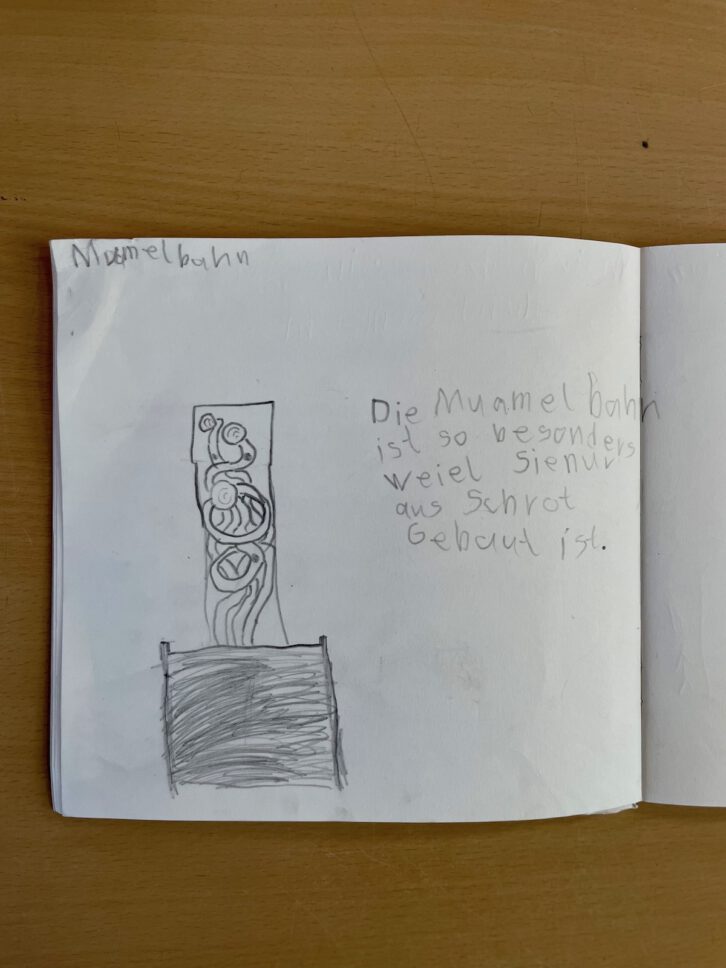 Muamelbahn
Die Muamel bahn
ist so besonders
weiel Sienur
aus Schrot
Gebaut ist.